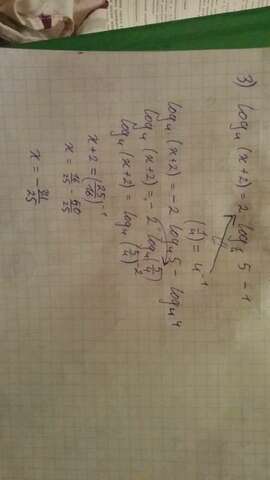 3) log₄ (x+2) = 2 log_{1/4} 5 - 1
(1/4) = 4⁻¹
log₄ (x+2) = -2 log₄ 5 - log₄ 4
log₄ (x+2) = -2 · log₄ (5/4)
log₄ (x+2) = log₄ (5/4)⁻²
x+2 = (25/16)⁻¹
x = 16/25 - 50/25
x = -34/25